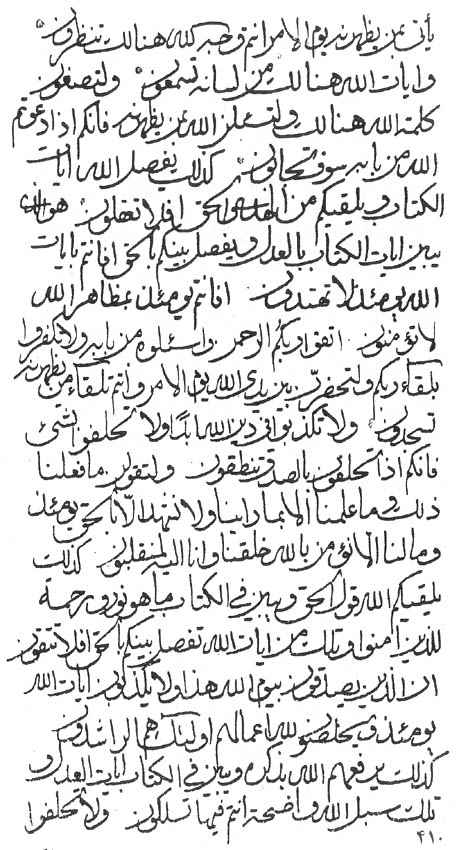 يأتي بمن يظهر نه يوم الامر انتم وجه كله هنالك تنظرون
وايات الله هنالك من لسانه تسمعون ولتصغون
كلمة الله هنالك ولتسئلن الله عمن يظهر نه فانكم اذا دعوتم
الله من بابه سوف تجابون كذلك يفصل الله ايات
الكتاب ويلقيكم من الحق افلا تعقلون هو
يبين ايات الكتاب بالعدل ويفصل بينكم بالحق افانتم بايات
الله يومئذ لا تهتدون افانتم يومئذ بمظاهر الله
لا تؤمنون اتقوا ربكم الرحمن واسئلوه من بابه ولا تكفروا
بلقاء ربكم ولتحضرن بين يدي الله يوم الامر وانتم تلقاء من يظهر نه
تسجدون ولا تكذبوا في دين الله ابدا ولا تحلفوا بشئ
فانكم اذا تحلفون بالصدق تنطقون ولتقولن ما فعلنا
ذلك في ما علمنا الا بما راينا ولا نشهد الا بالحق يومئذ
وما لنا الا نؤمن بالله خلقنا وانا اليه لمنقلبون كذلك
يلقيكم الله قول الحق ويبين في الكتاب ما هو نور ورحمة
للذين امنوا وتلك من ايات الله تفصل بينكم بالحق افلا تتقون
ان الذين يصدقون بيوم الله هذا ولا يكذبون بايات الله
يومئذ ويخلصون لله اعمالهم اولئك هم الراشدون
كذلك يرفعهم الله بذكره ويبين في الكتاب ايات العدل و
تلك سبل الله واضحة انتم فيها تسلكون ولا تحلفوا
۴۱۰